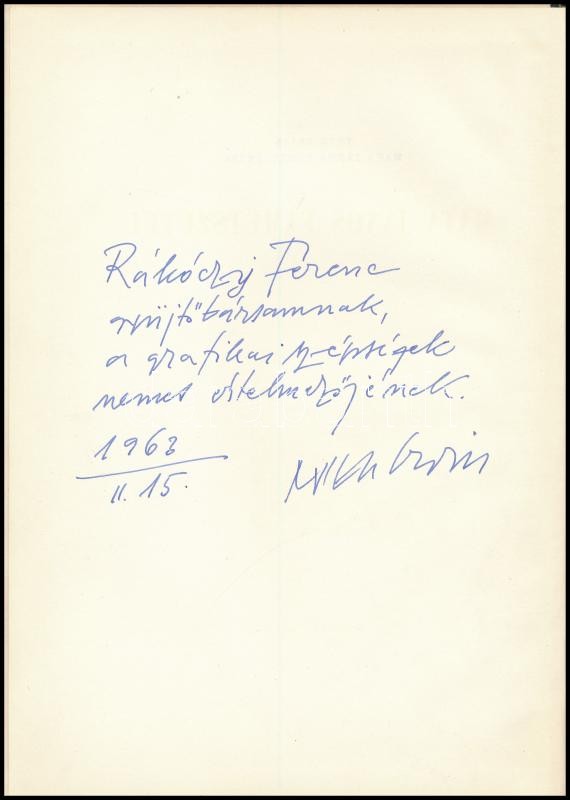 Rákóczy Ferenc
gyűjtőtársamnak,
a grafikai szépségek
nemes értelmezőjének.
1963
II. 15.